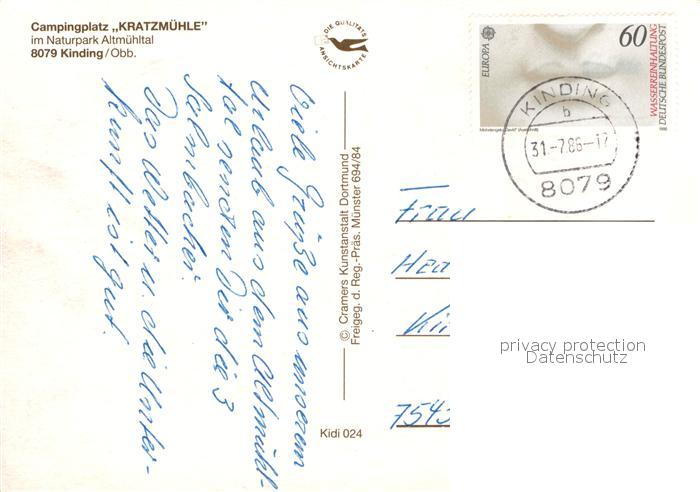 Campingplatz „KRATZMÜHLE"
im Naturpark Altmühltal
8079 Kinding/Obb.
DIE QUALITÄTS
ANSICHTSKARTE
EUROPA
60
WASSERREINHALTUNG
DEUTSCHE BUNDESPOST
1986
KINDING
b
31.-7.86-17
8079
Viele Grüße aus unserem
Urlaub aus dem Altmühl-
tal senden Dir die 3
Salmbacher
Das Wetter u. die Unter-
kunft ist gut.
© Cramers Kunstanstalt Dortmund
Freigeg. d. Reg.-Präs. Münster 694/84
Kidi 024
Frau
Hea
7543
privacy protection
Datenschutz